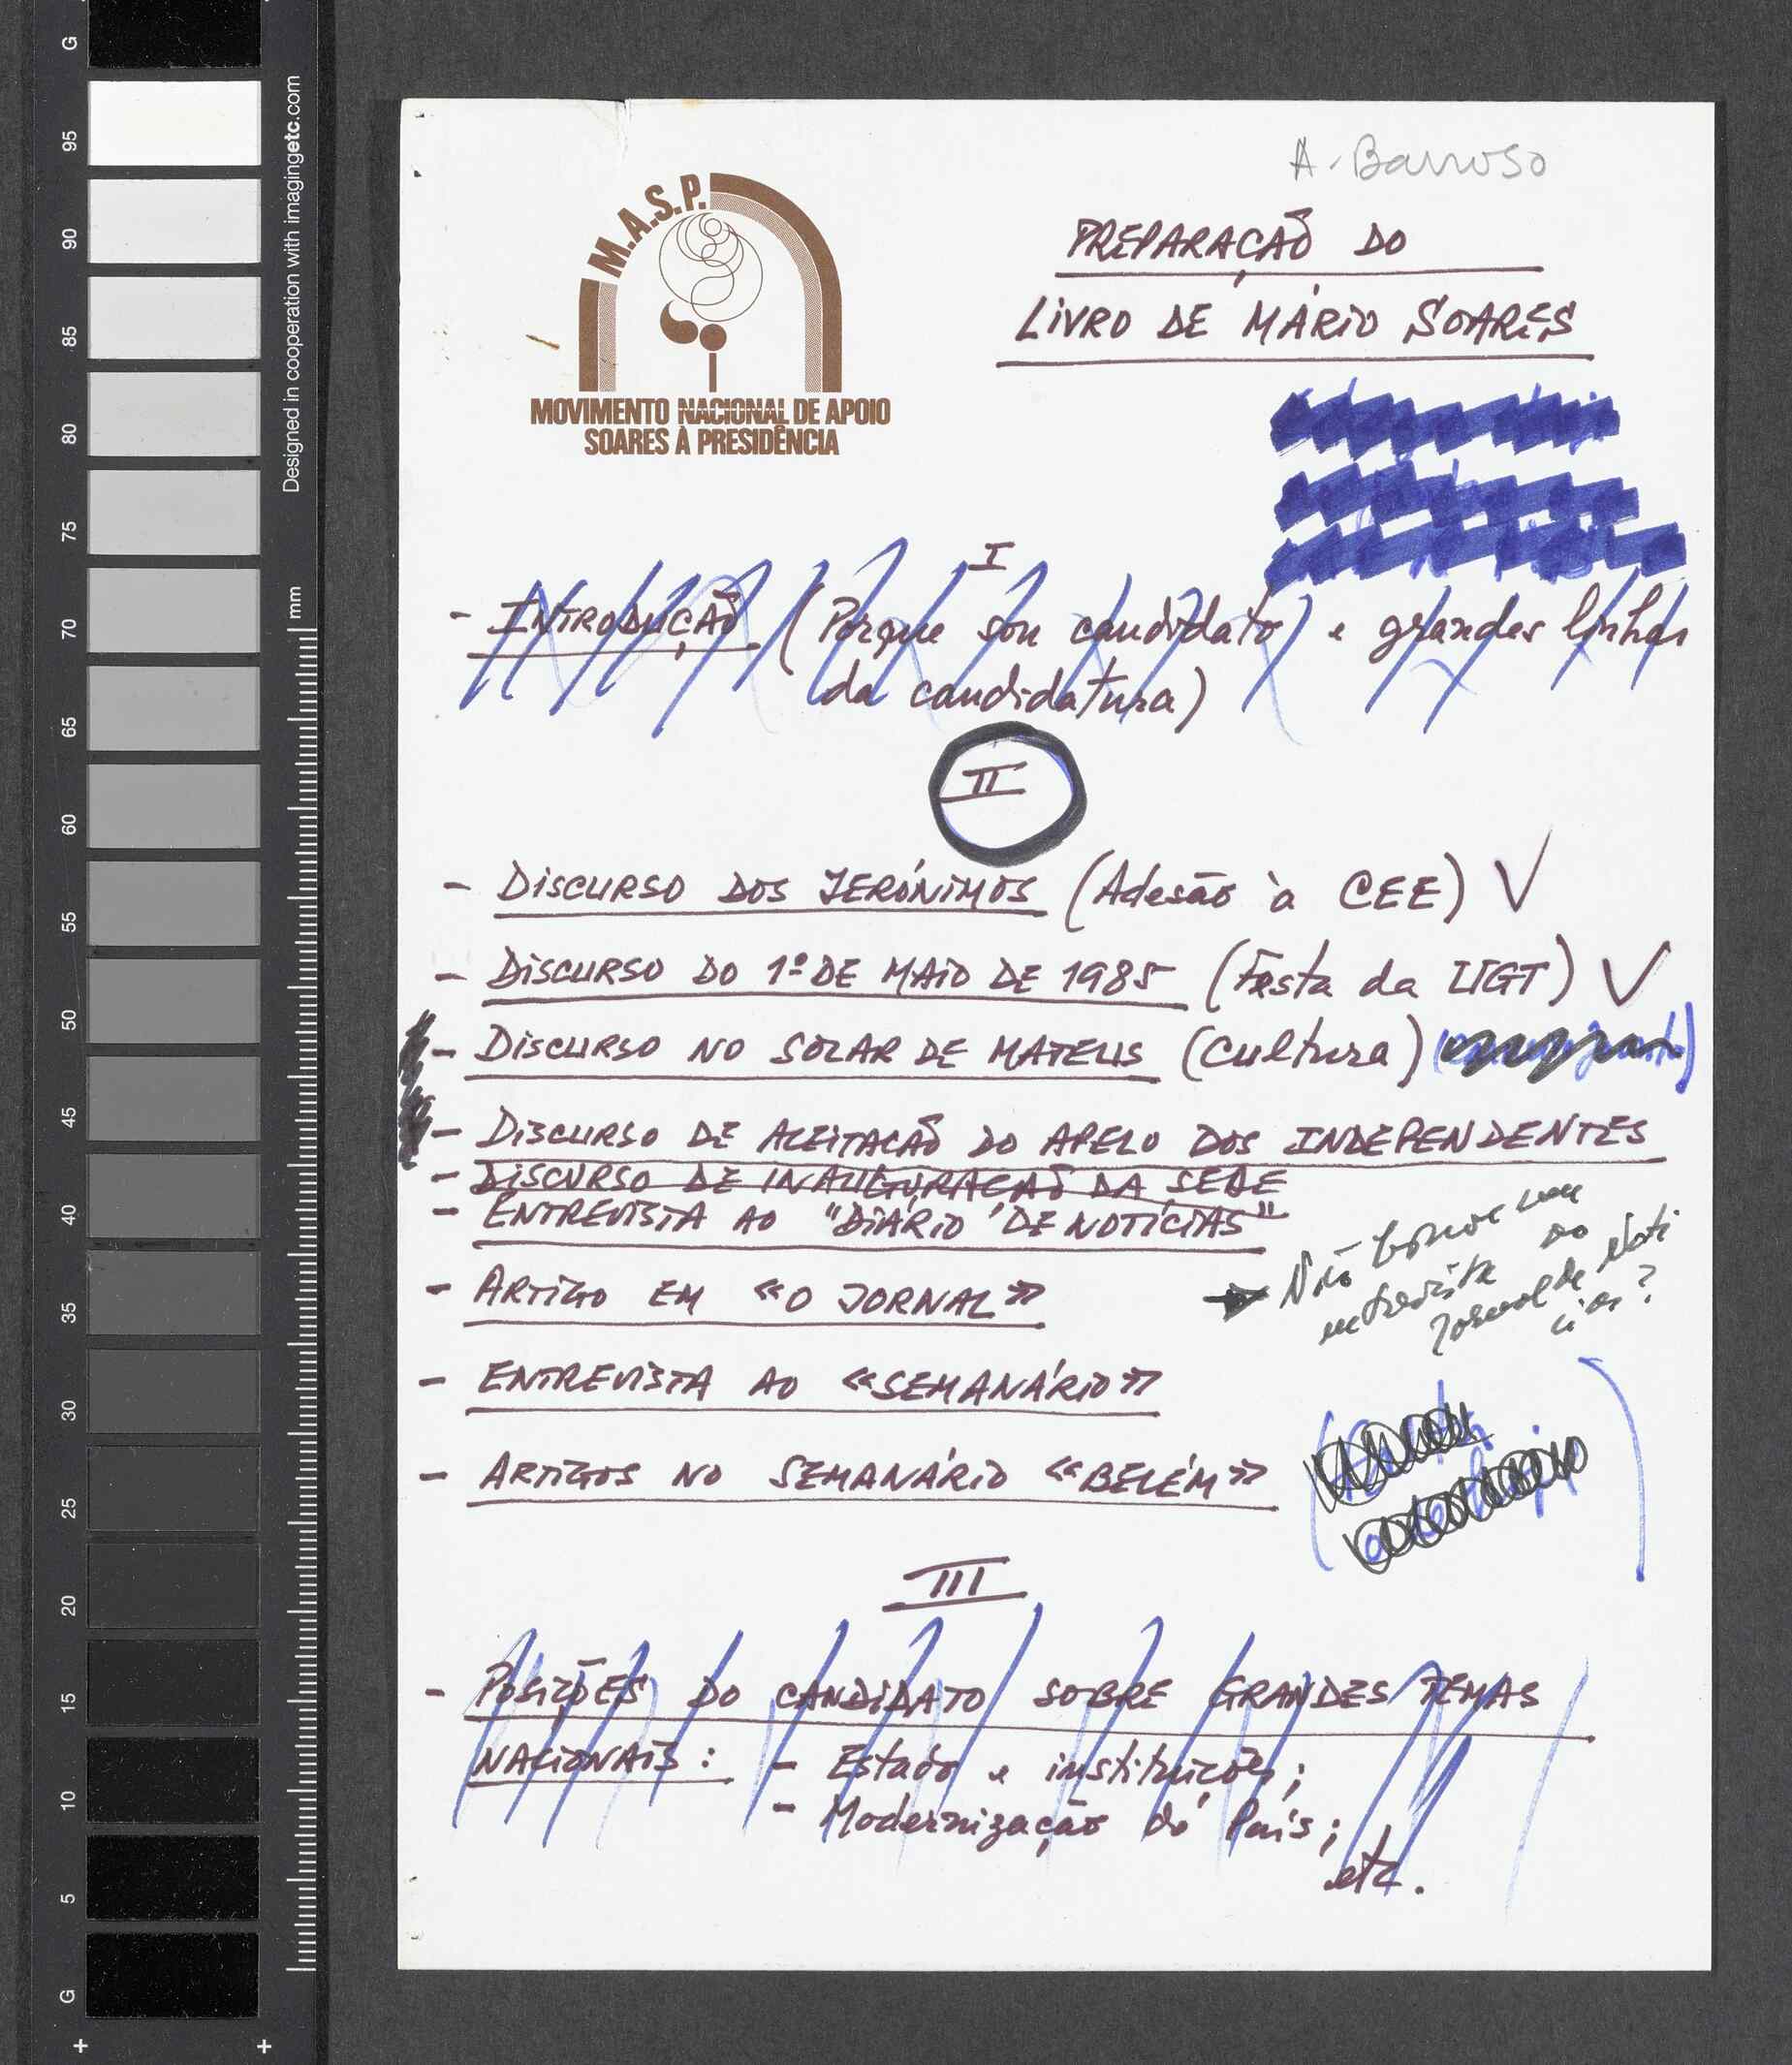 G
95
90
85
80
75
70
65
60
55
50
45
40
35
30
25
20
15
10
5
G
Designed in cooperation with imagingetc.com
mm
A. Barroso
M.A.S.P.
MOVIMENTO NACIONAL DE APOIO
SOARES À PRESIDÊNCIA
PREPARAÇÃO DO
LIVRO DE MÁRIO SOARES
I
- INTRODUÇÃO (Porque sou candidato) e grandes linhas
da candidatura)
II
- DISCURSO DOS JERÓNIMOS (Adesão à CEE) V
- DISCURSO DO 1º DE MAIO DE 1985 (Festa da UGT) V
- DISCURSO NO SOLAR DE MATEUS (Cultura)
- DISCURSO DE ACEITAÇÃO DO APELO DOS INDEPENDENTES
- DISCURSO DE INAUGURAÇÃO DA SEDE
- ENTREVISTA AO "DIÁRIO DE NOTÍCIAS"
- ARTIGO EM «O JORNAL»
→ Não houve uma
entrevista ao
Jornal de Notí
cias?
- ENTREVISTA AO «SEMANÁRIO»
- ARTIGOS NO SEMANÁRIO «BELÉM»
III
- POSIÇÕES DO CANDIDATO SOBRE GRANDES TEMAS
NACIONAIS: - Estado e instituições;
- Modernização do País;
etc.